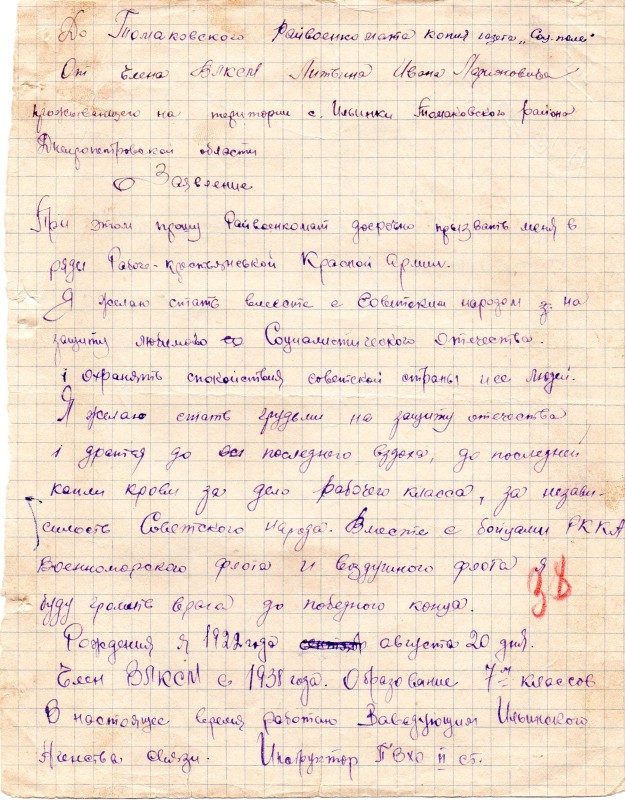 До Томаковского Райвоенкомата копия газета „Соц. поле"
От Члена ВЛКСМ Литвина Ивана Ларионовича
проживающего на територии с. Ильинки Томаковского района
Днепропетровской области
Заявление
При этом прошу Райвоенкомат досрочно призвать меня в
ряды Рабоче-крестьянской Красной Армии.
Я желаю стать вместе с Советским народом на
защиту любимого Социалистического Отечества.
і охранять спокойствия советской страны и ее людей.
Я желаю стать грудьми на защиту отечества
і дратся до последнего вздоха, до последней
капли крови за дело рабочего класса, за незави-
симость Советского народа. Вместе с бойцами РККА
Военноморского флота и воздушного флота я
буду громить врага до победного конца.
38
Рождения я 1922 года августа 20 дня.
Член ВЛКСМ с 1938 года. Образование 7м классов
В настоящее время работаю Заведующим Ильинского
Агенства связи. Инструктор ПВХО II ст.